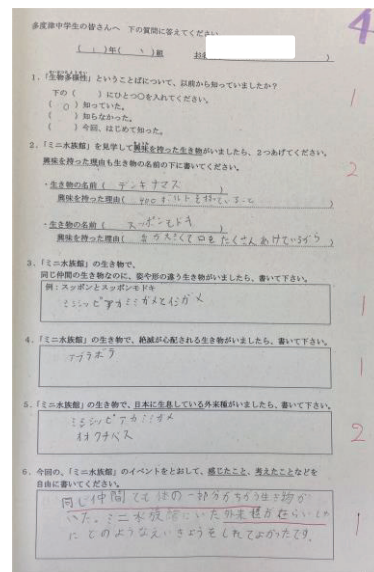 多度津中学生の皆さんへ 下の質問に答えてください
4
( 1 )年( 1 )組 お名 )
1.「生物多様性」ということばについて、以前から知っていましたか?
下の( )にひとつ○を入れてください。
( ○ )知っていた。
( )知らなかった。
( )今回、はじめて知った。
1
2.「ミニ水族館」を見学して興味を持った生き物がいましたら、2つあげてください。
興味を持った理由も生き物の名前の下に書いてください。
2
・生き物の名前( デンキナマズ )
興味を持った理由( 400ボルトを持っていること )
・生き物の名前( スッポンモドキ )
興味を持った理由( 大きくて口をたくさんあけているから )
3.「ミニ水族館」の生き物で、
同じ仲間の生き物なのに、姿や形の違う生き物がいましたら、書いて下さい。
例:スッポンとスッポンモドキ
ミシシッピアカミミガメとイシガメ
1
4.「ミニ水族館」の生き物で、絶滅が心配される生き物がいましたら、書いて下さい。
アブラボテ
1
5.「ミニ水族館」の生き物で、日本に生息している外来種がいましたら、書いて下さい。
ミシシッピアカミミガメ
オオクチバス
2
6.今回の、「ミニ水族館」のイベントをとおして、感じたこと、考えたことなどを
自由に書いてください。
同じ仲間でも体の一部分がちがう生き物が
いた。ミニ水族館にいた外来種が在らいしゅ
にどのようなえいきょうをしれてよかったです。
1